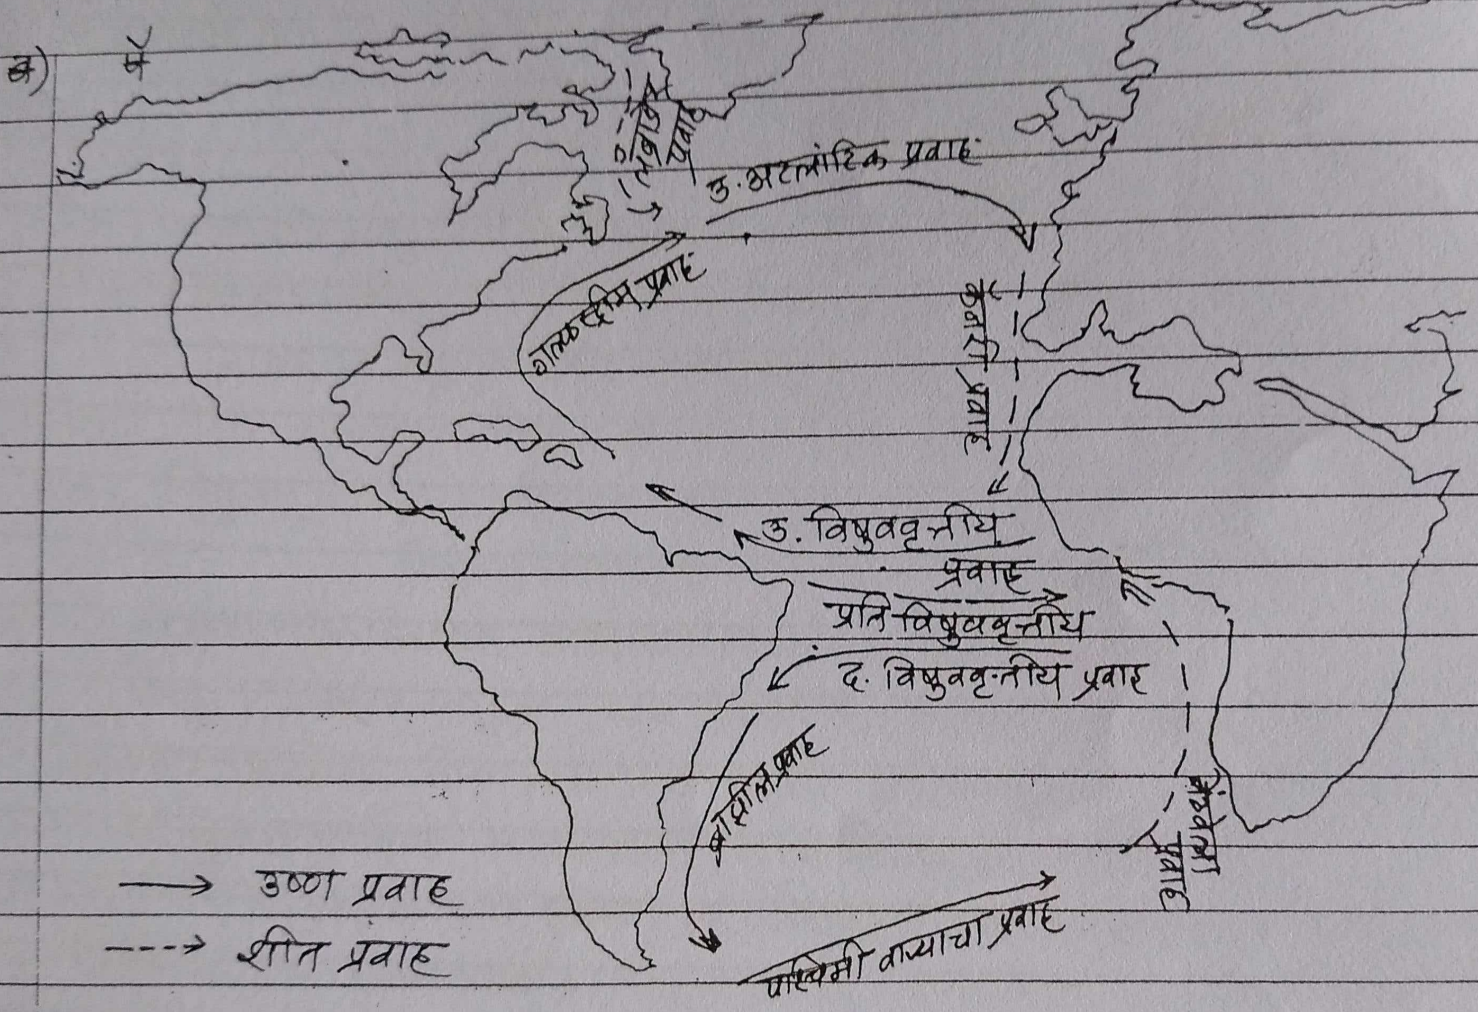 ब)
लॅब्राडोर
प्रवाह
उ. अटलांटिक प्रवाह
गल्फस्ट्रीम प्रवाह
कॅनरी प्रवाह
उ. विषुववृत्तीय
प्रवाह
प्रति विषुववृत्तीय
द. विषुववृत्तीय प्रवाह
ब्राझील प्रवाह
बेंग्वेला
प्रवाह
उष्ण प्रवाह
शीत प्रवाह
पश्चिमी वाऱ्याचा प्रवाह